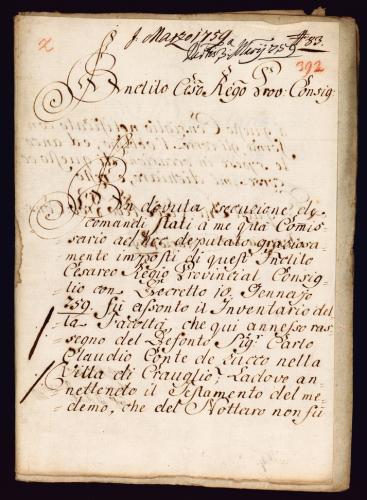 2
j. Marzo 1759
# 83.
392
Inclito Ceso. Rego. Prov: Consig:
In dovuta esecuzione de
comandi stati à me qta Comis-
sario ad hoc deputato graziosa-
mente imposti di quest Inclito
Cesareo Regio Provincial Consig-
lio con Decretto 10. Gennajo
759. fù assonto il Inventario del-
la Facoltà, che qui annesso ras-
segno del Defonto Sigr. Carlo
Claudio Conte de Zucco nella
Villa di Crauglio; Ladove an-
nettendo il Testamento del me-
demo, che del Nottaro non fù